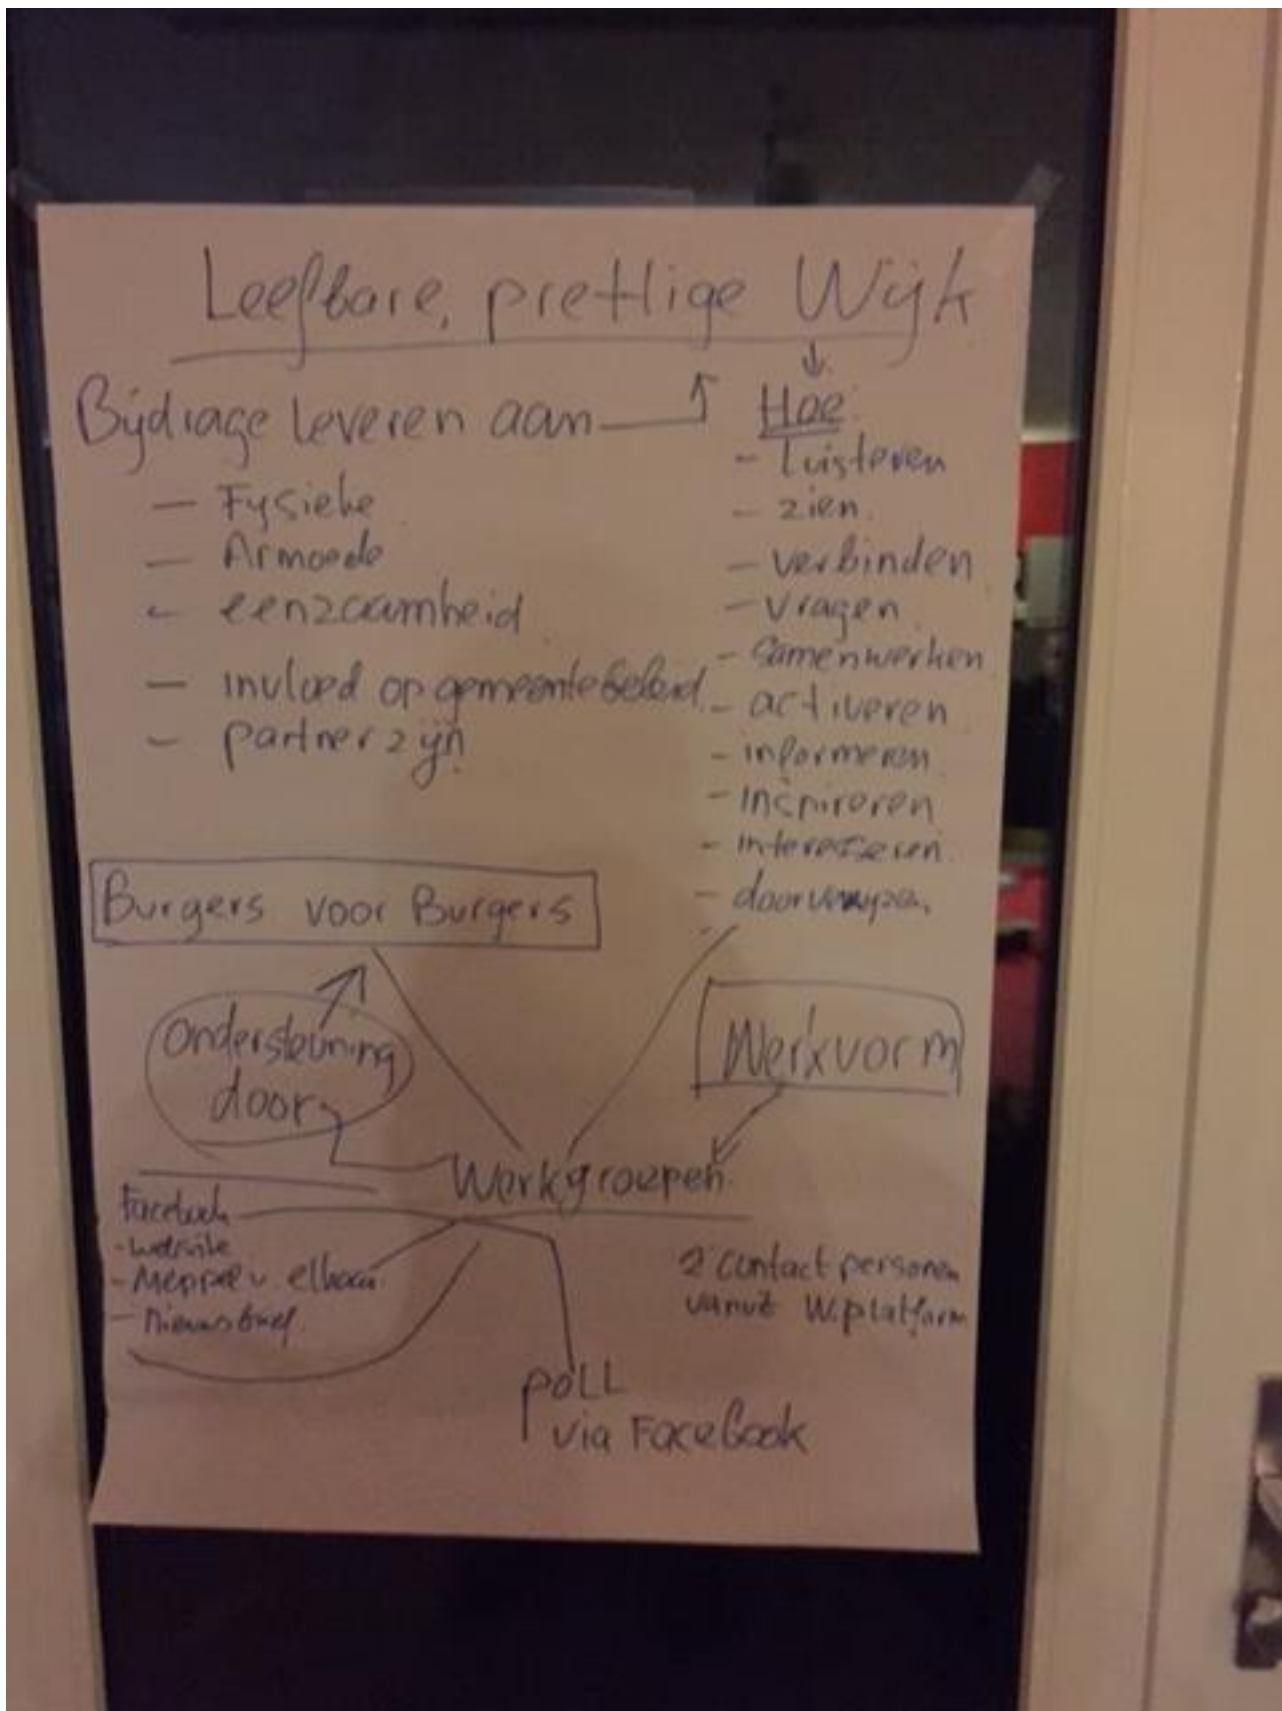 Leefbare, prettige Wijk
Bijdrage leveren aan
- Fysieke
- Armoede
- eenzaamheid
- invloed op gemeentebeleid
- partner zijn
Hoe:
- luisteren
- zien
- verbinden
- vragen
- samenwerken
- activeren
- informeren
- inspireren
- interesseren
Burgers voor Burgers
Ondersteuning
door
Werkvorm
Werkgroepen
Facebook
- website
- Meppel v.
- Nieuwsbrief
2 contact personen
vanuit W.platform
POLL
via Facebook